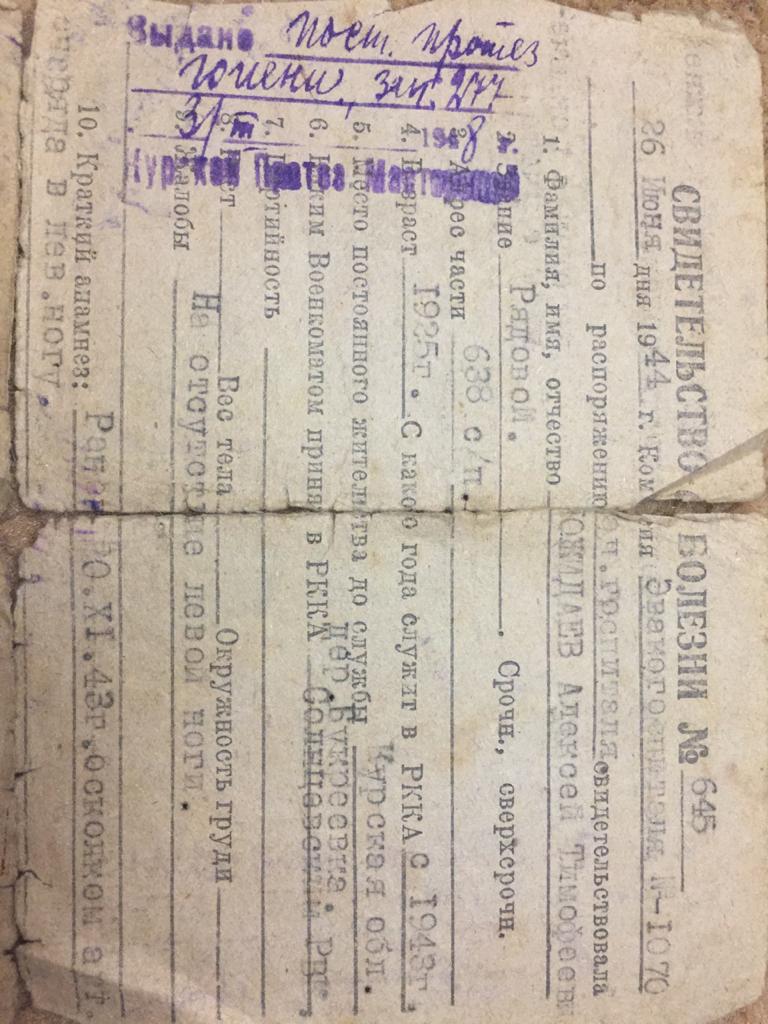 СВИДЕТЕЛЬСТВО О БОЛЕЗНИ № 645
26 Июня дня 1944 г. Комиссия Эвакогоспиталя №-1070
по распоряжению нач.госпиталя свидетельствовала
1. Фамилия, имя, отчество ОЖИДАЕВ Алексей Тимофеев
2. Звание Рядовой. Срочн., сверхсрочн.
3. Адрес части 638 с/п.
4. Возраст 1925г. С какого года служит в РККА С 1943г.
5. Место постоянного жительства до службы Курская обл.
дер.Букреевка.
6. Каким Военкоматом принят в РККА Солнцевским РВК.
7. Партийность
8. Рост Вес тела Окружность груди
9. Жалобы На отсутствие левой ноги.
10. Краткий анамнез: Ранен 20.XI.43г.осколком арт.
снаряда в лев.ногу.
Выдано пост. протез
голени, зак. 277
3/III 1948 г.
Курской Протез Мастерской